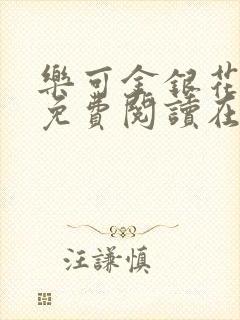 樂可金銀花
免費閱讀在
汪謙慎